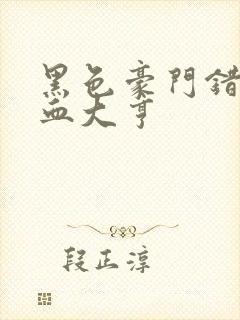 黑色豪門錯
血大亨
段正淳